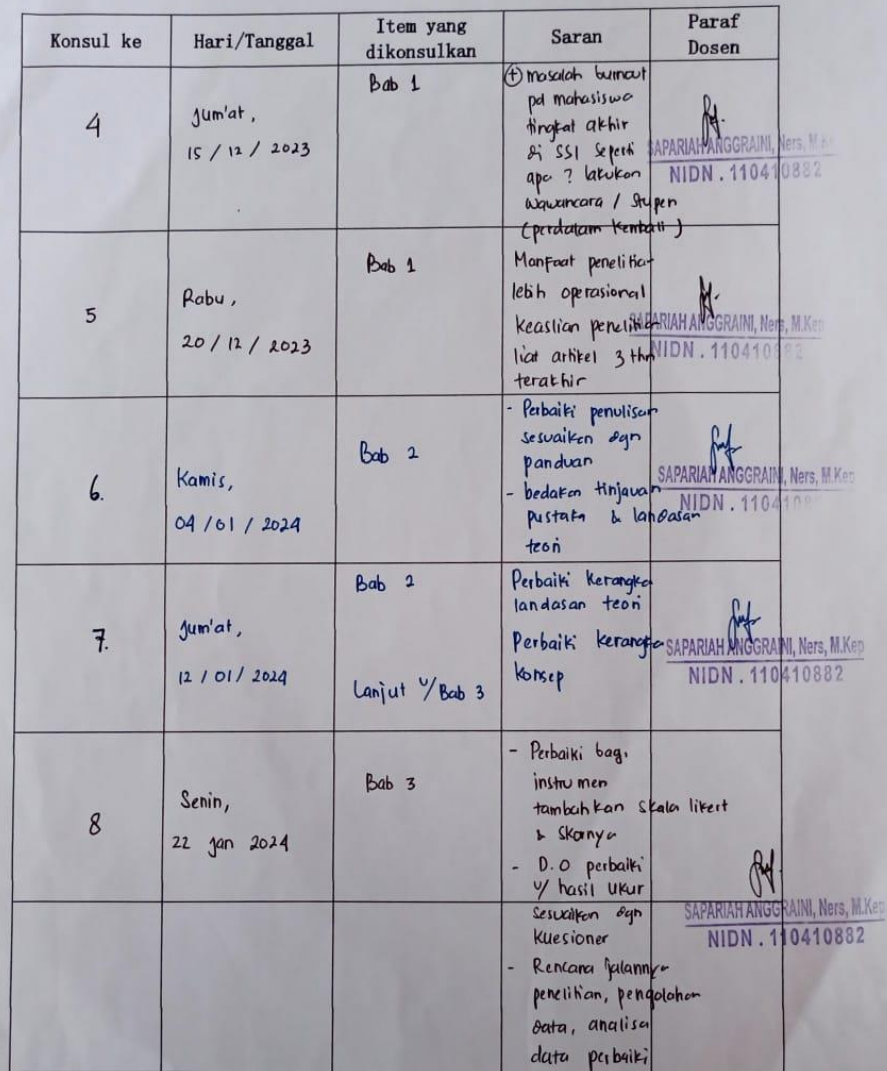 Konsul ke
Hari/Tanggal
Item yang
dikonsulkan
Saran
Paraf
Dosen
4
Jum'at,
15 / 12 / 2023
Bab 1
(+) masalah burnout
pd mahasiswa
tingkat akhir
di SSI seperti
apa ? lakukan
wawancara / stupen
(perdalam kembali)
SAPARIAH ANGGRAINI, Ners, M.Kep
NIDN . 110410882
5
Rabu,
20 / 12 / 2023
Bab 1
Manfaat penelitian
lebih operasional
keaslian penelitian
liat artikel 3 thn
terakhir
SAPARIAH ANGGRAINI, Ners, M.Kep
NIDN . 110410882
6.
Kamis,
04 / 01 / 2024
Bab 2
- Perbaiki penulisan
sesuaikan dgn
panduan
- bedakan tinjauan
pustaka & landasan
teori
SAPARIAH ANGGRAINI, Ners, M.Kep
NIDN . 110410882
7.
Jum'at,
12 / 01 / 2024
Bab 2
Lanjut u/ Bab 3
Perbaiki kerangka
landasan teori
Perbaiki kerangka
konsep
SAPARIAH ANGGRAINI, Ners, M.Kep
NIDN . 110410882
8
Senin,
22 Jan 2024
Bab 3
- Perbaiki bag.
instrumen
tambahkan skala likert
& skornya
- D.O perbaiki
u/ hasil ukur
sesuaikan dgn
kuesioner
- Rencana jalannya
penelitian, pengolahan
data, analisa
data perbaiki
SAPARIAH ANGGRAINI, Ners, M.Kep
NIDN . 110410882